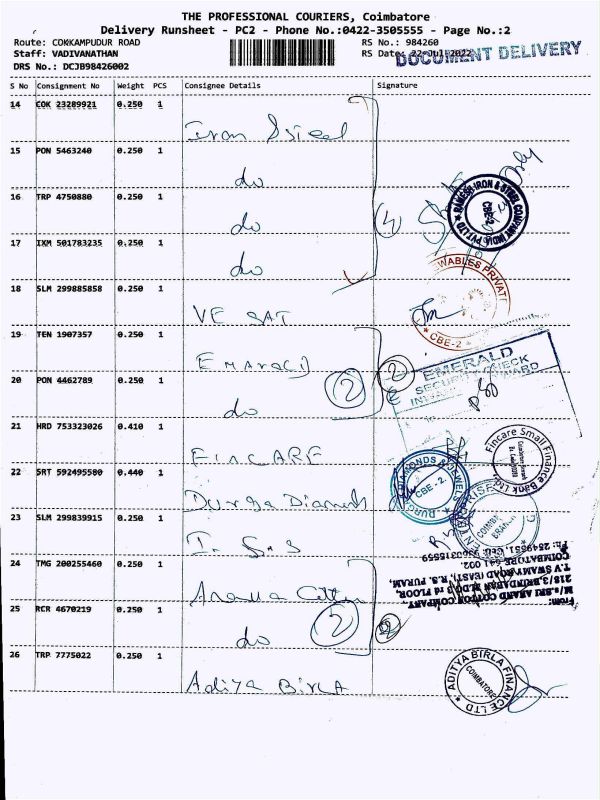 THE PROFESSIONAL COURIERS, Coimbatore
Delivery Runsheet - PC2 - Phone No.:0422-3505555 - Page No.:2
Route: COKKAMPUDUR ROAD RS No.: 984260
Staff: VADIVANATHAN RS Date: 22-Jul-2022
DOCUMENT DELIVERY
DRS No.: DCJB98426002
S No Consignment No Weight PCS Consignee Details Signature
14 COK 23289921 0.250 1
15 PON 5463240 0.250 1
do
16 TRP 4750880 0.250 1
do
17 IXM 501783235 0.250 1
do
4
RAMESH IRON & STEEL COMPANY INDIA PVT LTD
CBE-2
18 SLM 299885858 0.250 1
VE SAT
WABLES PRIVAT
CBE-2
19 TEN 1907357 0.250 1
Emarald
2
20 PON 4462789 0.250 1
do
2
EMERALD
SECURITY CHECK
21 HRD 753323026 0.410 1
FINCARE
Fincare Small Finance Bank Ltd.
22 SRT 592495580 0.440 1
Durga Diamonds
DIAMONDS & JEWEL
CBE - 2.
23 SLM 299839915 0.250 1
COIMBA
BRANCH
24 TMG 200255460 0.250 1
Cotton
From:
M/s.SRI ANAND COTTON COMPANY,
218/3, BRUNDABAN BLDG 3 rd FLOOR,
T.V SWAMY ROAD (EAST), R.S. PURAM,
COIMBATORE 641 002.
25 RCR 4670219 0.250 1
do
2
2
26 TRP 7775022 0.250 1
Aditya BIRLA
ADITYA BIRLA FINANCE LTD
COIMBATORE